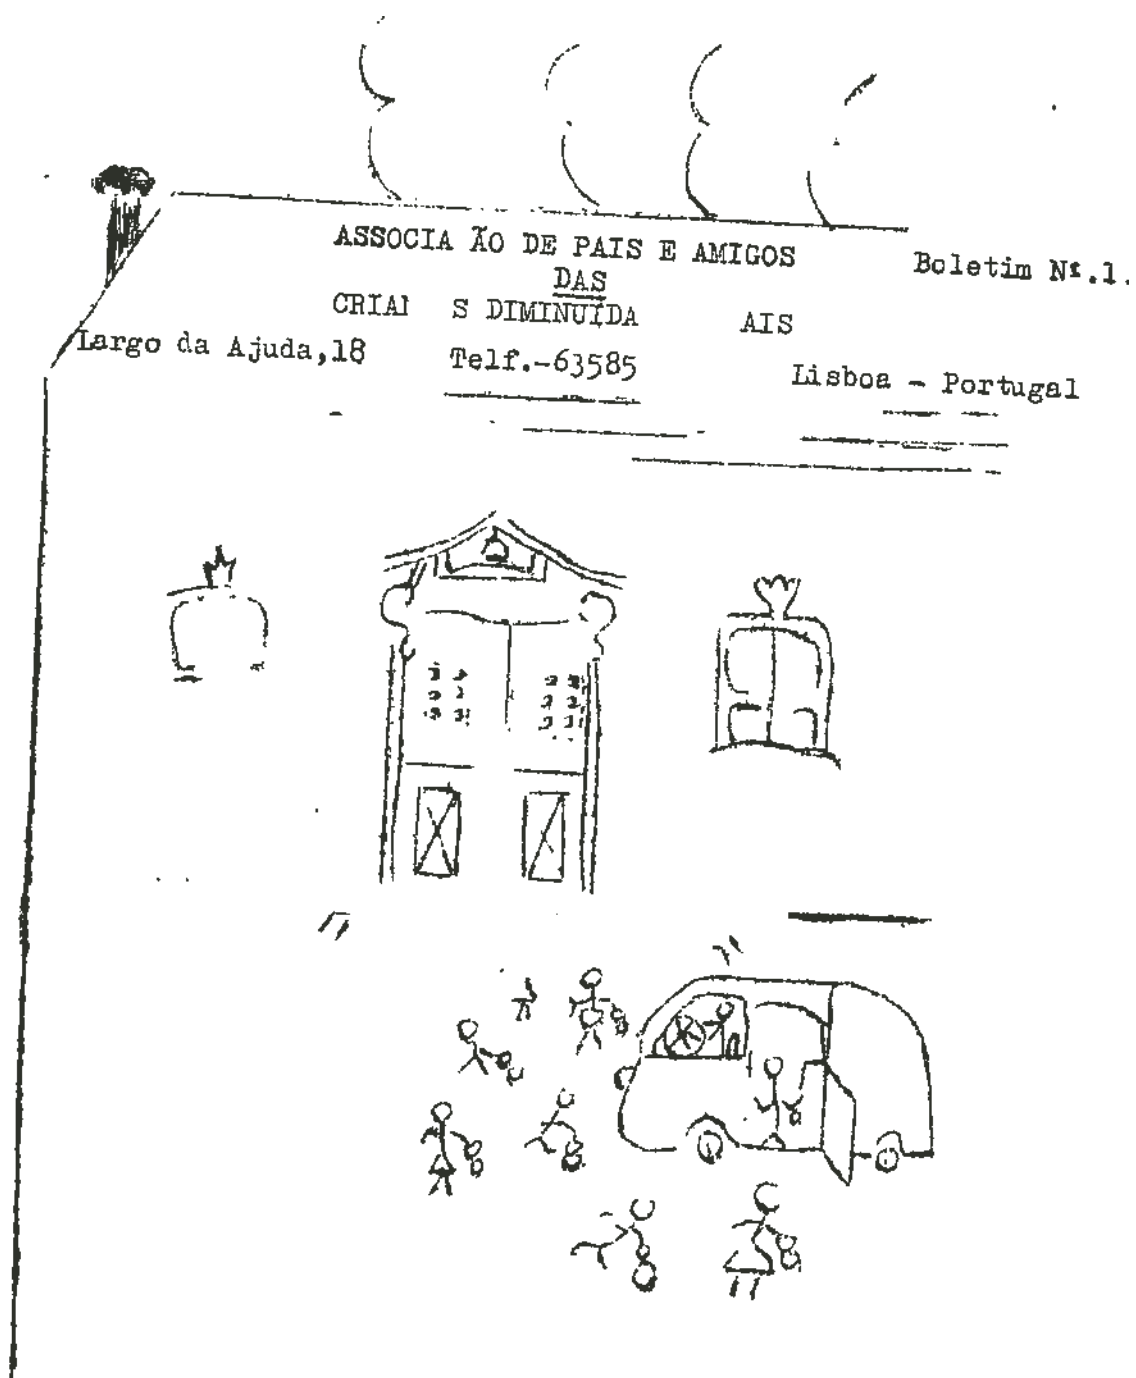 ASSOCIA ÃO DE PAIS E AMIGOS
Boletim Nº.1.
DAS
CRIAI S DIMINUÍDA AIS
Largo da Ajuda,18 Telf.-63585 Lisboa - Portugal